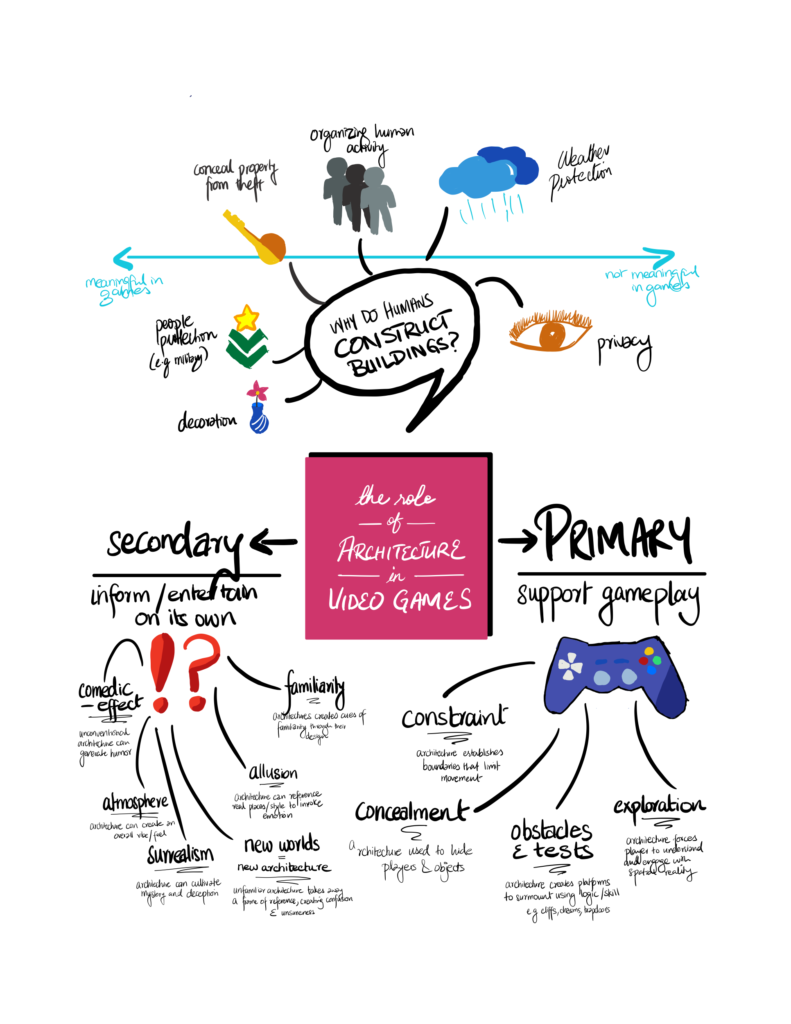 organizing human
activity
conceal property
from theft
Weather
Protection
meaningful in
games
not meaningful
in games
WHY DO HUMANS
CONSTRUCT
BUILDINGS?
people
protection
(e.g. military)
privacy
decoration
the role
of
ARCHITECTURE
in
VIDEO GAMES
secondary
inform/entertain
on its own
PRIMARY
support gameplay
comedic
-effect
unconventional
architecture can
generate humor
familiarity
architecture creates cues of
familiarity through their
designs
allusion
architecture can reference
real places/style to invoke
emotion
atmosphere
architecture can create an
overall vibe/feel
surrealism
architecture can cultivate
mystery and deception
new worlds
=
new architecture
unfamiliar architecture takes away
a frame of reference, creating confusion
& unsureness
constraint
architecture establishes
boundaries that limit
movement
concealment
architecture used to hide
players & objects
obstacles
& tests
architecture creates platforms
to surmount using logic/skill
e.g cliffs, chasms,
exploration
architecture forces
player to understand
and engage with
spatial reality